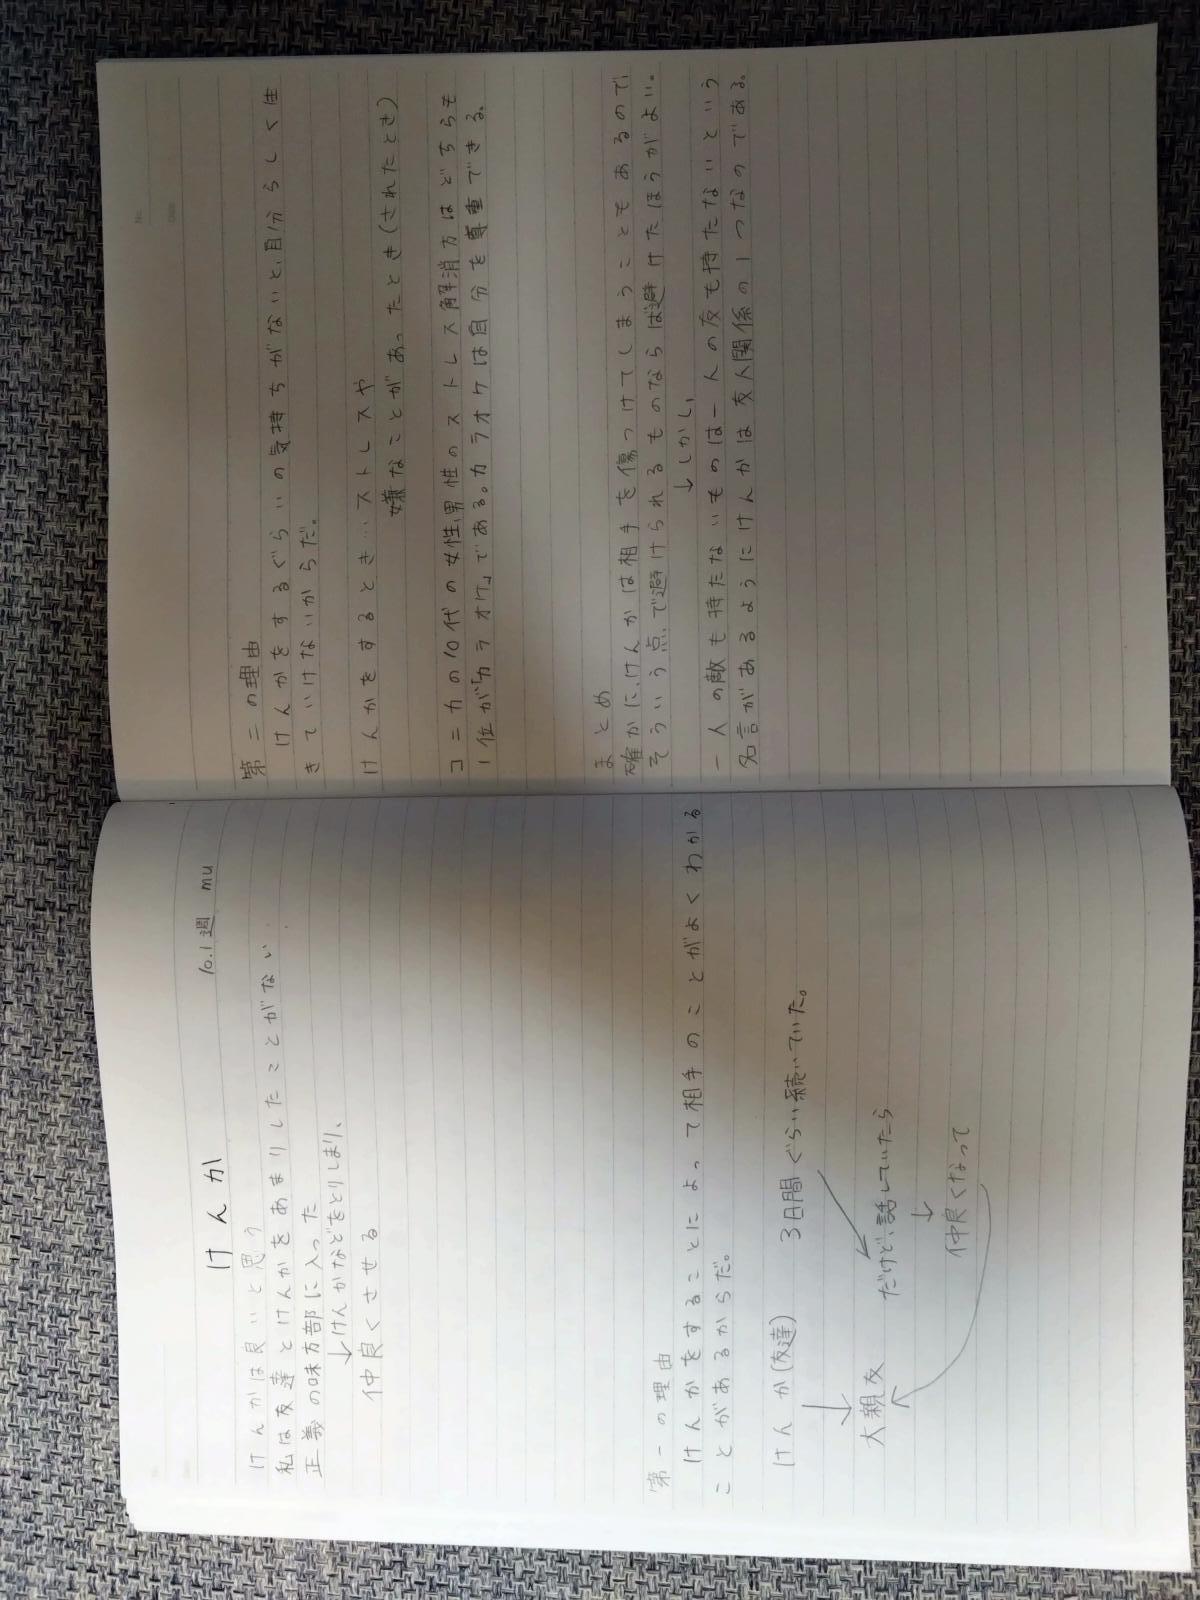 10.1週 mu
けんか
けんかは良いと思う
私は友達とけんかをあまりしたことがない.
正義の味方部に入った
↓けんかなどをとりしまり、
仲良くさせる
第一の理由
けんかをすることによって相手のことがよくわかる
ことがあるからだ。
けんか(友達) 3日間ぐらい続いていた。
↓
大親友 だけど、話していたら
↓
仲良くなって
No.
Date
第二の理由
けんかをするぐらいの気持ちがないと、自分らしく生
きていけないからだ。
けんかをするとき…ストレスや
嫌なことがあったとき(されたとき)
コニカの10代の女性、男性のストレス解消方はどちらも
1位が「カラオケ」である。カラオケは自分を尊重できる。
まとめ
確かに、けんかは相手を傷つけてしまうこともあるので、
そういう点で避けられるものならば避けたほうがよい。
↓しかし、
一人の敵も持たないものは一人の友も持たないという
名言があるようにけんかは友人関係の1つなのである。